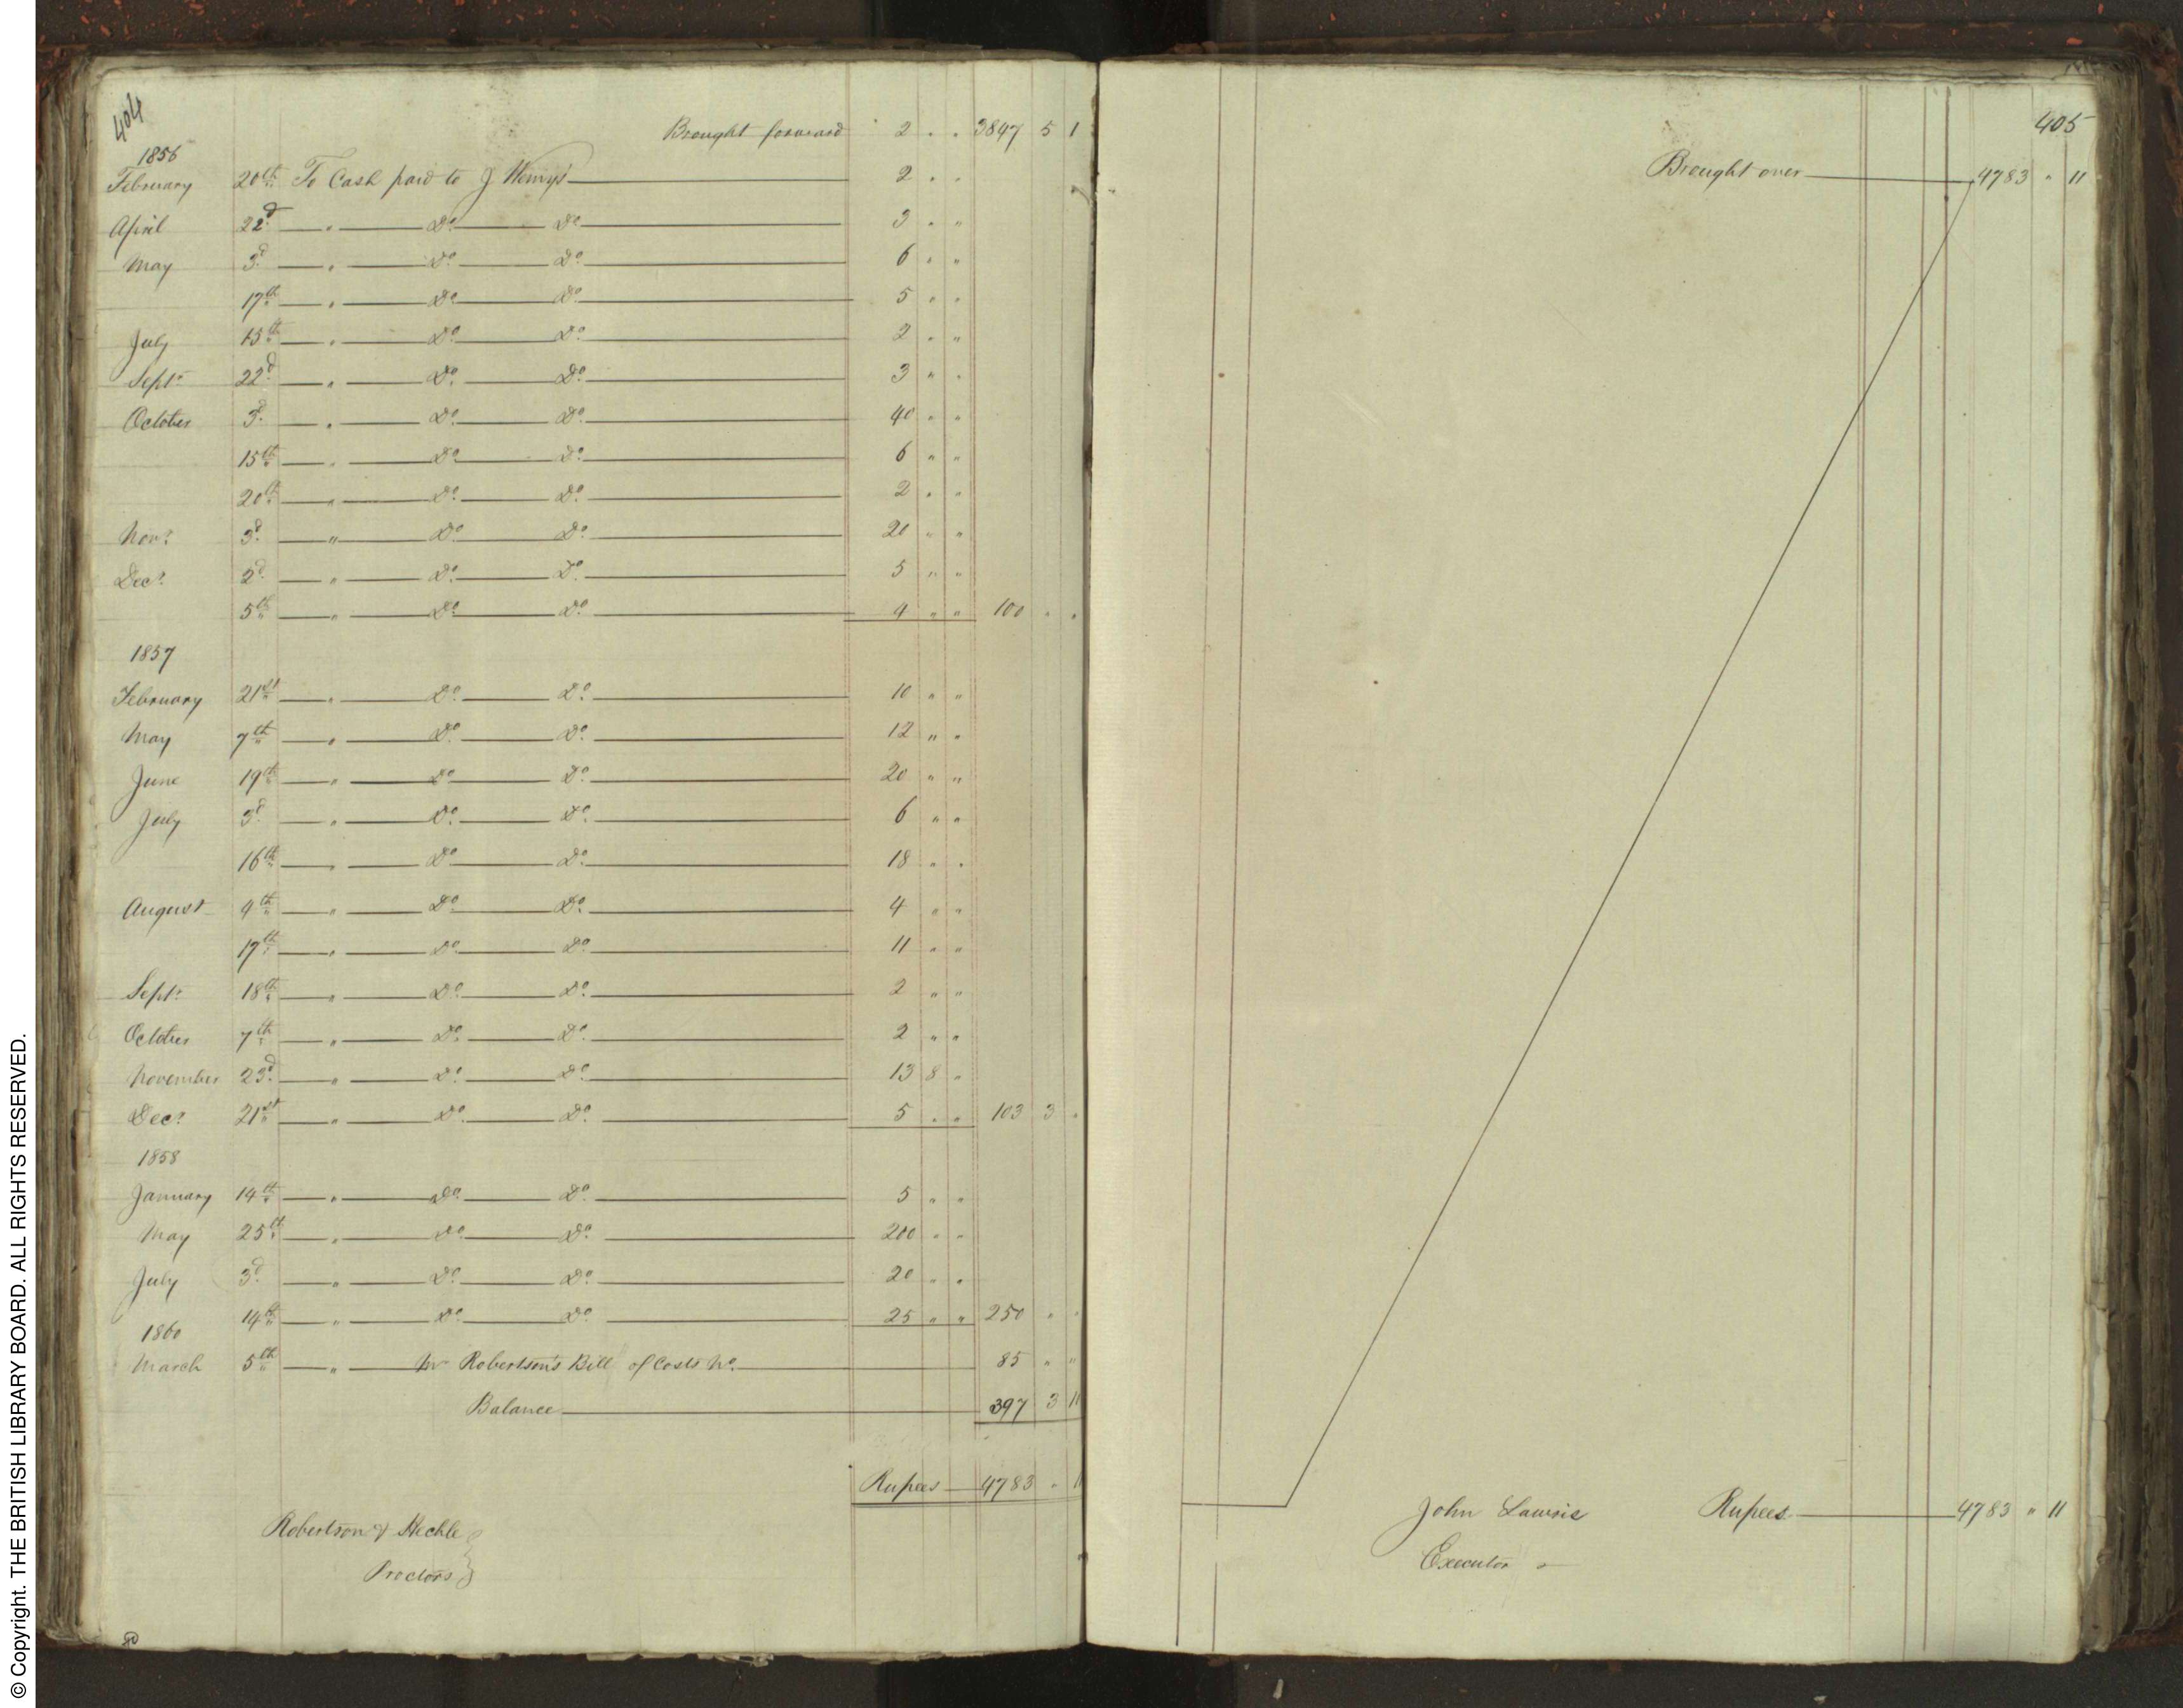 404
Brought forward 2 . . 3847 5 1
1856
February 20th To Cash paid to J Wemys 2 . .
April 22d " Do Do 3 . "
May 3d " Do Do 6 " "
17th " Do Do 5 " "
July 15th " Do Do 2 . "
Septr 22d " Do Do 3 " .
October 3d " Do Do 40 " "
15th " Do Do 6 " "
20th " Do Do 2 . "
Novr 3d " Do Do 20 " "
Decr 2d " Do Do 5 " "
5th " Do Do 4 " " 100 . .
1857
February 21st " Do Do 10 " "
May 7th " Do Do 12 " "
June 19th " Do Do 20 " "
July 3d " Do Do 6 " "
16th " Do Do 18 " .
August 4th " Do Do 4 " "
17th " Do Do 11 . "
Septr 18th " Do Do 2 " "
October 7th " Do Do 2 " "
November 23d " Do Do 13 8 "
Decr 21st " Do Do 5 . " 103 3 .
1858
January 14th " Do Do 5 " "
May 25th " Do Do 200 " "
July 3d " Do Do 20 " "
14th " Do Do 25 " " 250 " "
1860
March 5th " Mr Robertson's Bill of Costs No 85 " "
Balance 397 3 11
Rupees 4783 " 11
Robertson & Hechle
Proctors
405
Brought over 4783 " 11
John Lawrie Rupees 4783 " 11
Executor
© Copyright. THE BRITISH LIBRARY BOARD. ALL RIGHTS RESERVED.